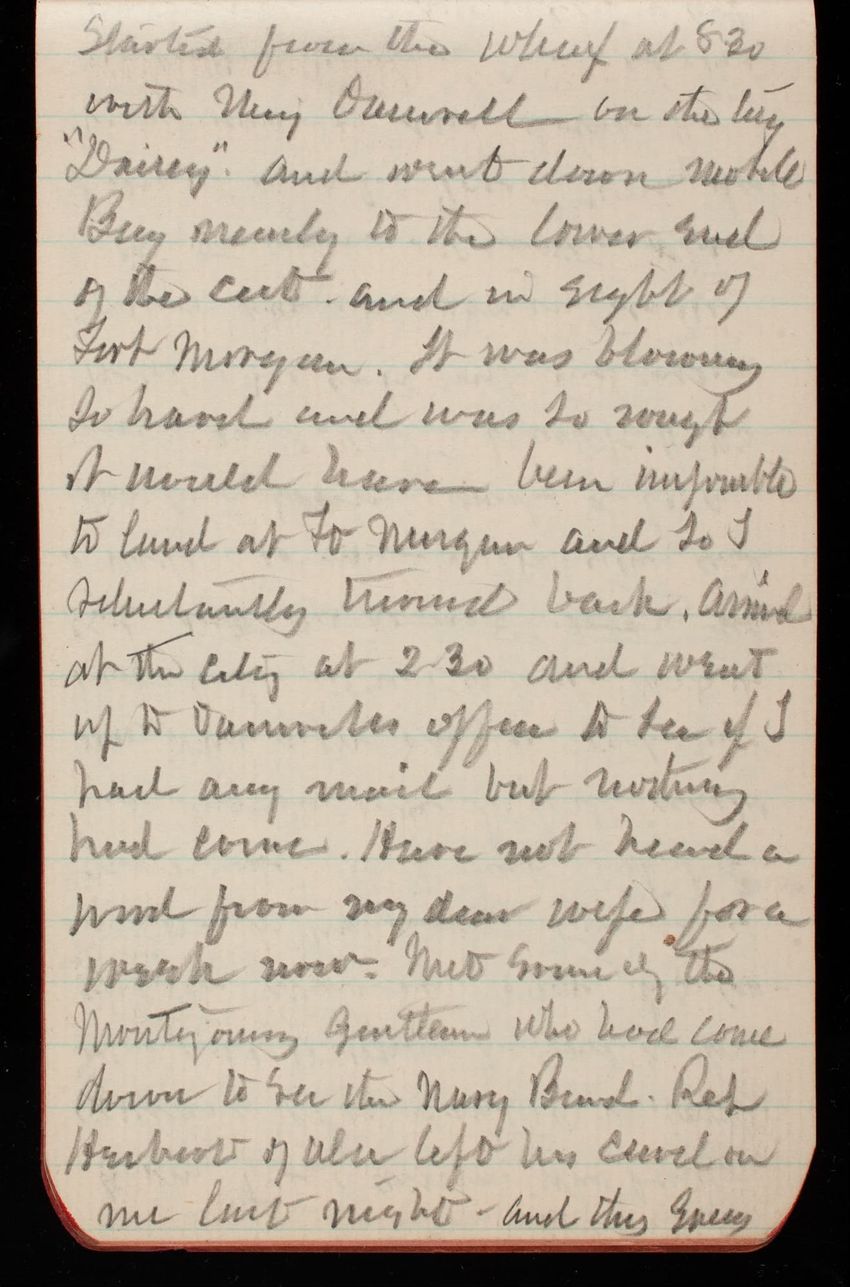 Started from the Wharf at 8 30
with Maj Damrell on the tug
"Daisey". and went down Mobile
Bay nearly to the lower end
of the cut. and in sight of
Fort Morgan. It was blowing
so hard and was so rough
it would have been impossible
to land at Ft Morgan and so I
reluctantly turned back. Arrived
at the city at 2 30 and went
up to Damrells office to see if I
had any mail but nothing
had come. Have not heard a
word from my dear wife for a
week now. Met some of the
Montgomery Gentlemen who had come
down to see the Navy Board. Rep
Herbert of Ala left his card on
me last night - and this